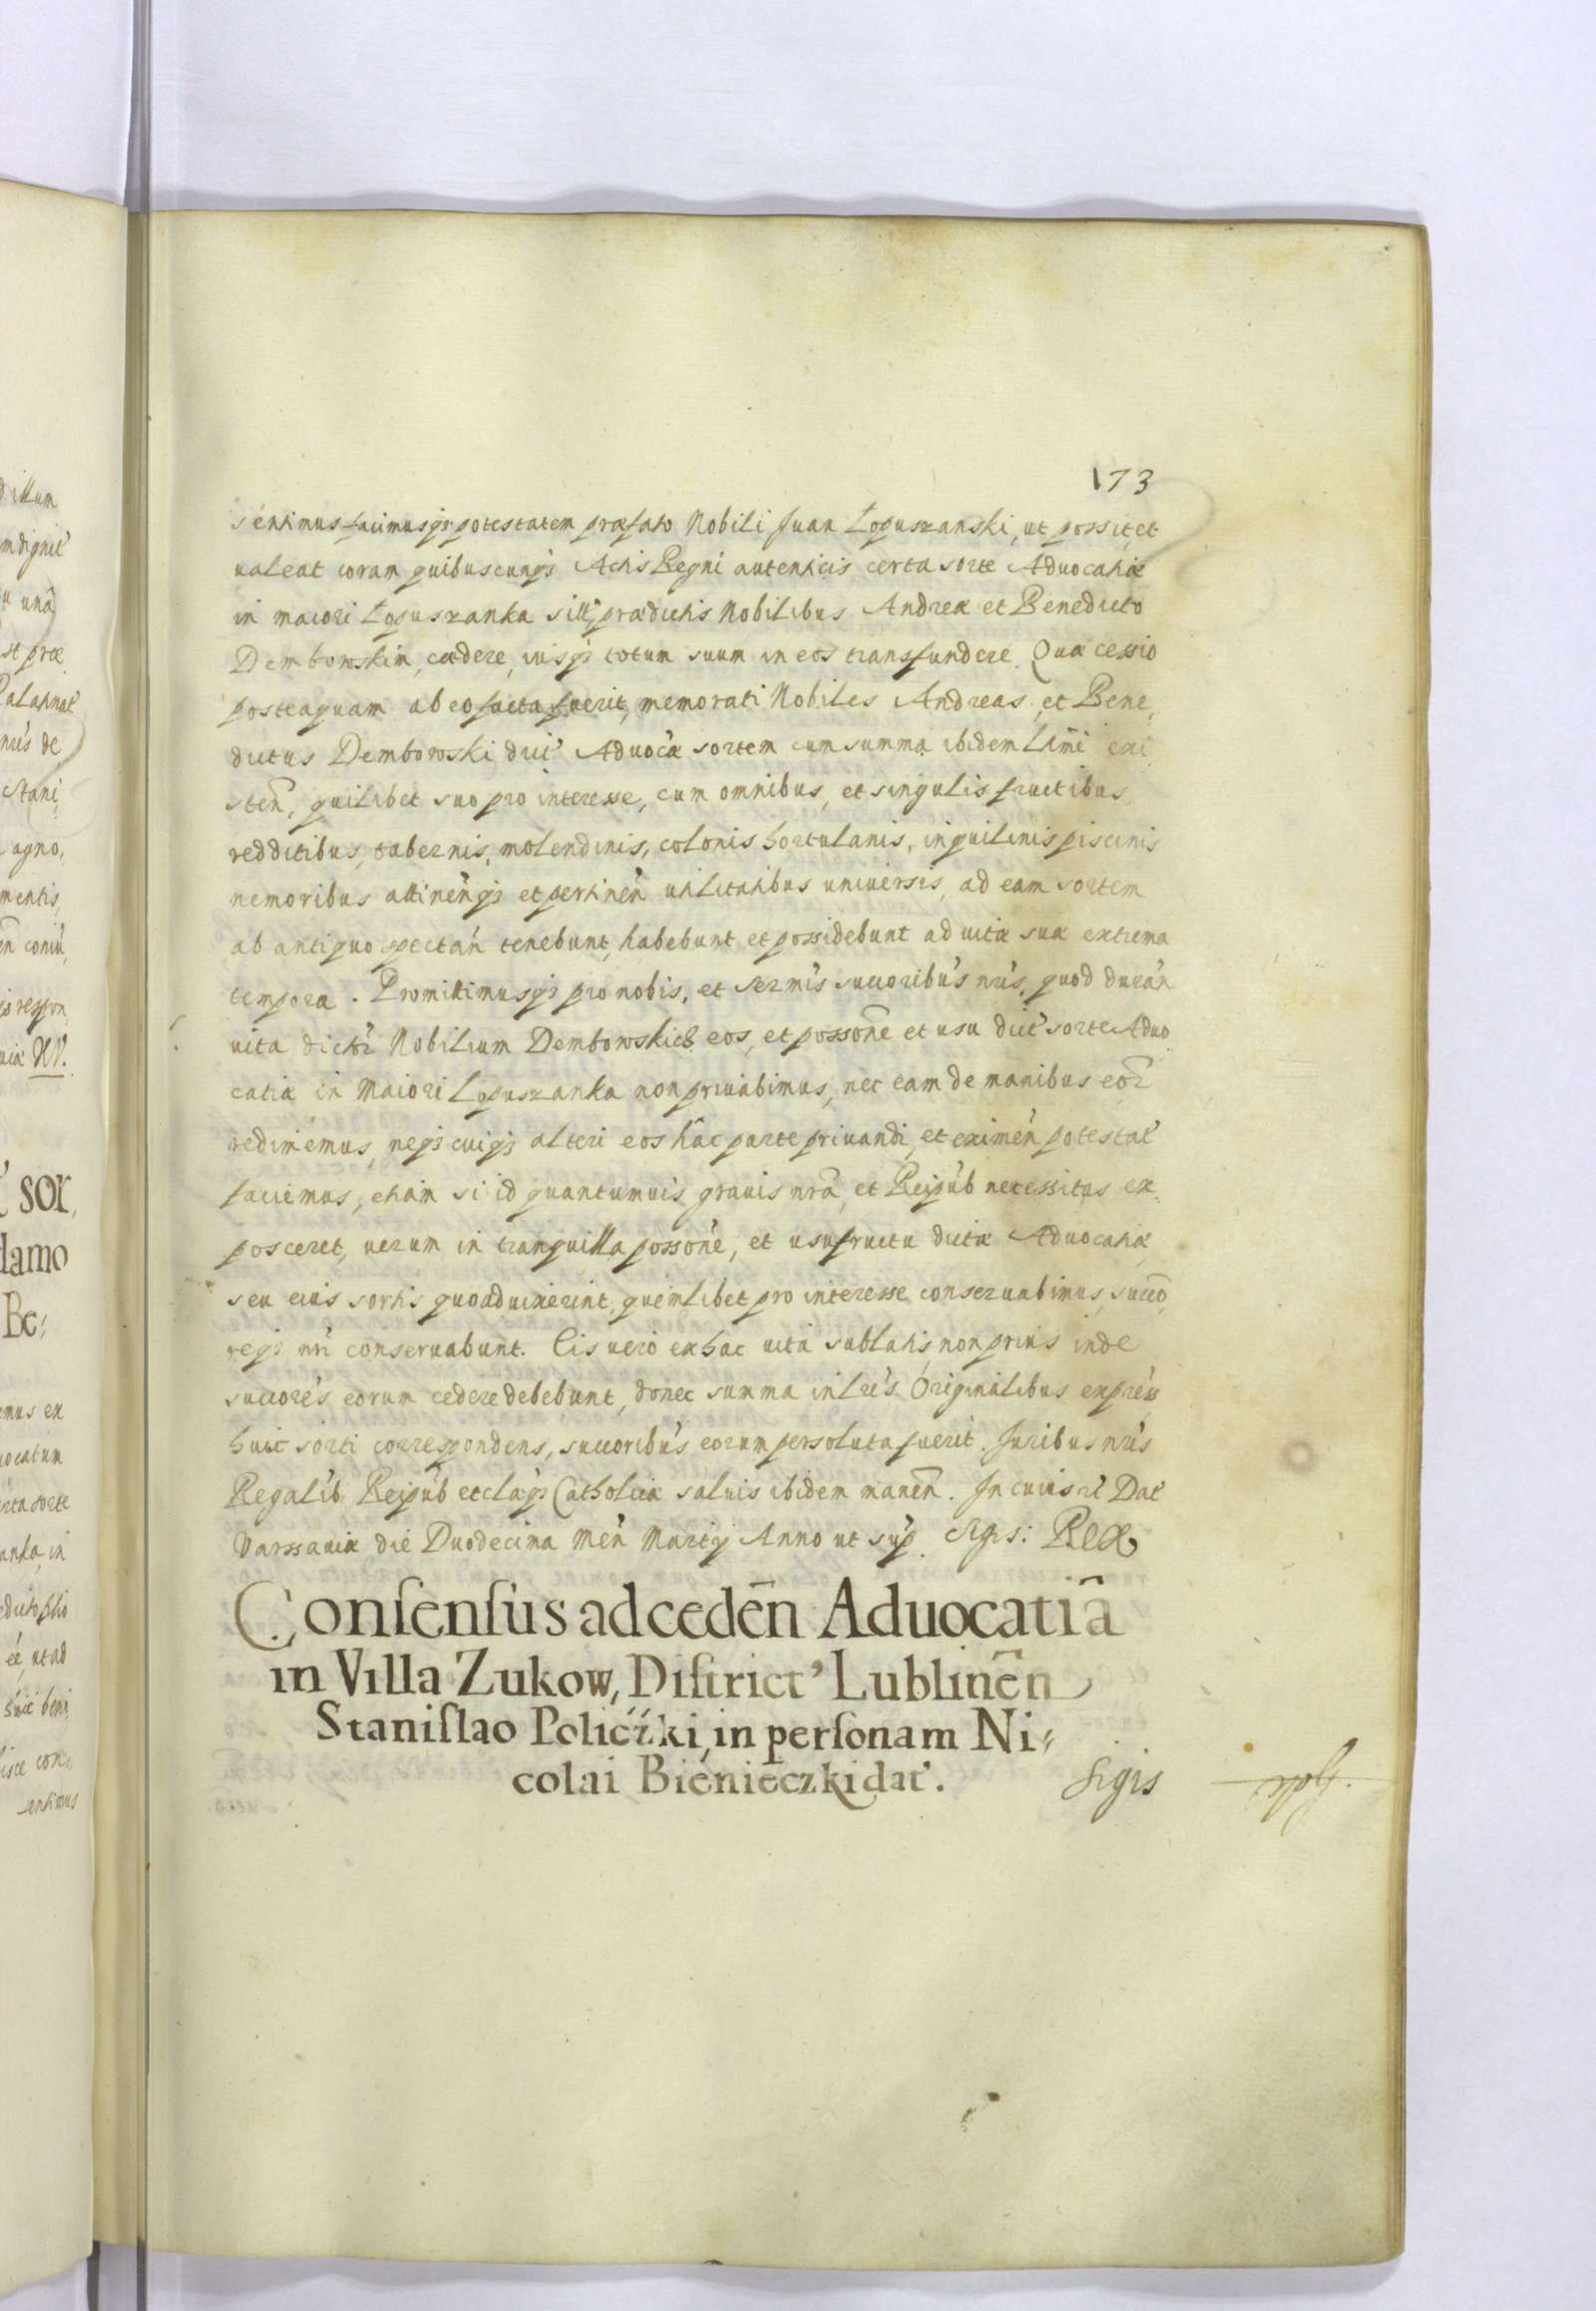 173
sentimus facimusq̃ potestatem præfato Nobili Juan Lopuszanski, ut possit, et
ualeat coram quibuscunq̃ Actis Regni autenticis certa sorte Aduocatiæ
in maiori Lopuszanka prædictis Nobilibus Andreæ et Benedicto
Dembowskim, cædere, iusq̃ totum suum in eos transfundere. Quæ cessio
posteaquam ab eo facta fuerit, memorati Nobiles Andreas et Bene,
dictus Dembowski dict' Aduocã sortem cum summa ibidem exi
steñ, quilibet suo pro interesse, cum omnibus, et singulis fructibus
redditibus, tabernis, molendinis, colonis hortulanis, inquilinis piscinis
nemoribus attineñq̃ et pertineñ utilitatibus uniuersis, ad eam sortem
ab antiquo spectañ tenebunt, habebunt et possidebunt ad uitæ suæ extrema
tempora. Promittimusq̃ pro nobis, et Sermis succoribus nris, quod durañ
uita dictor Nobilium Dembowskich eos, et possone et usu dict' sorte Aduo
catiæ in Maiori Lopuszanka non priuabimus, nec eam de manibus eor
redimemus, neq̃ cuiq̃ alteri eos hac parte priuandi, et eximeñ potestat'
faciemus, etiam si id quantumuis grauis nra, et Reipub necessitas ex
posceret, uerum in tranquilla possone, et usufructu dictæ Aduocatiæ
seu eius sortis quoad uixerint, quemlibet pro interesse conseruabimus, succo
resq̃ nri conseruabunt. Eis uero ex hac uita sublatis, non prius inde
succores eorum cedere debebunt, donec summa in lris Originalibus express
huic sorti correspondens, succoribus eorum persoluta fuerit. Juribus nris
Regalib Reipub etclæq̃ Catholicæ saluis ibidem maneñ. In cuius rei Dat'
Varssauiæ die Duodecima Meñ Martij Anno ut sup. Sgis: Rex
Consensus ad cedeñ Aduocatiã
in Villa Zukow, District' Lublineñ
Stanislao Policzki, in personam Ni-
colai Bienieczki dat'.
Sigis